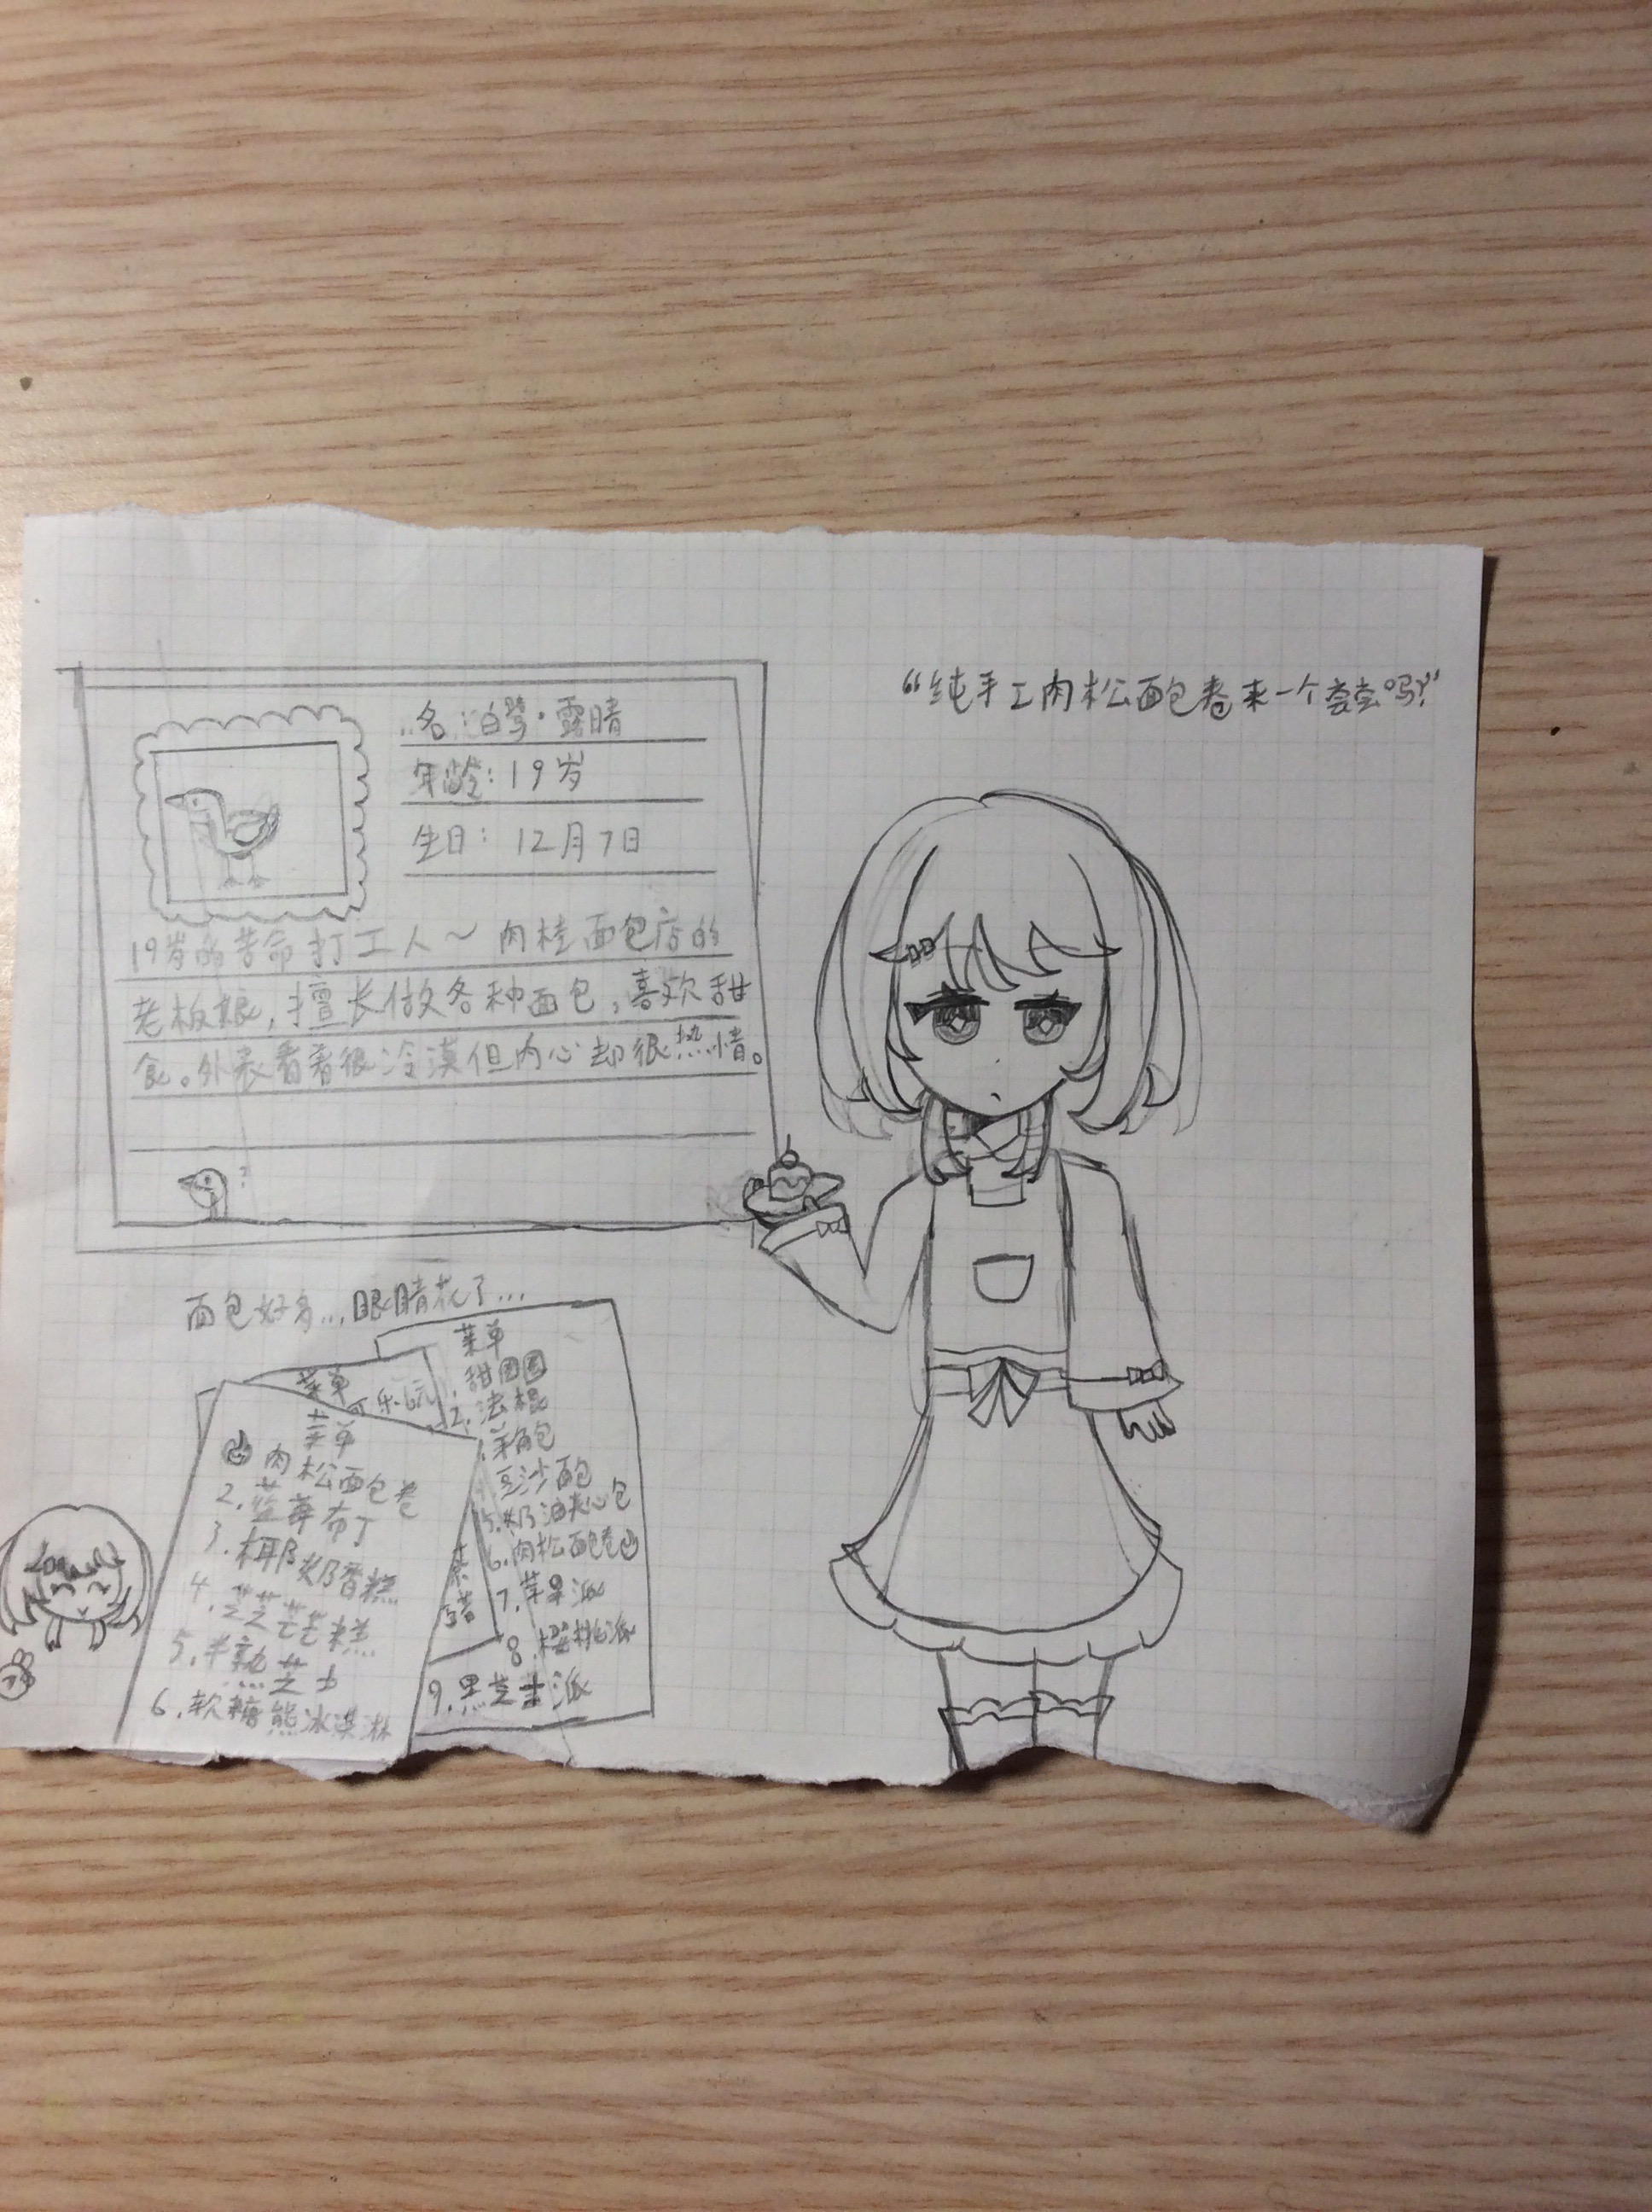 “纯手工肉松面包卷来一个尝尝吗?”
名:白鹭·露晴
年龄:19岁
生日:12月7日
19岁的苦命打工人~肉桂面包店的
老板娘,擅长做各种面包,喜欢甜
食。外表看着很冷漠但内心却很热情。
?
面包好多...眼睛花了...
菜单
肉松面包卷
2.蓝莓布丁
3.椰奶香糕
4.芝芝芒芒糕
5.半熟芝士
6.软糖熊冰淇淋
菜单
可乐
菜单
1.甜圈圈
2.法棍
羊角包
豆沙面包
5.奶油夹心包
6.肉松面包卷
7.苹果派
8.樱桃派
9.黑芝士派